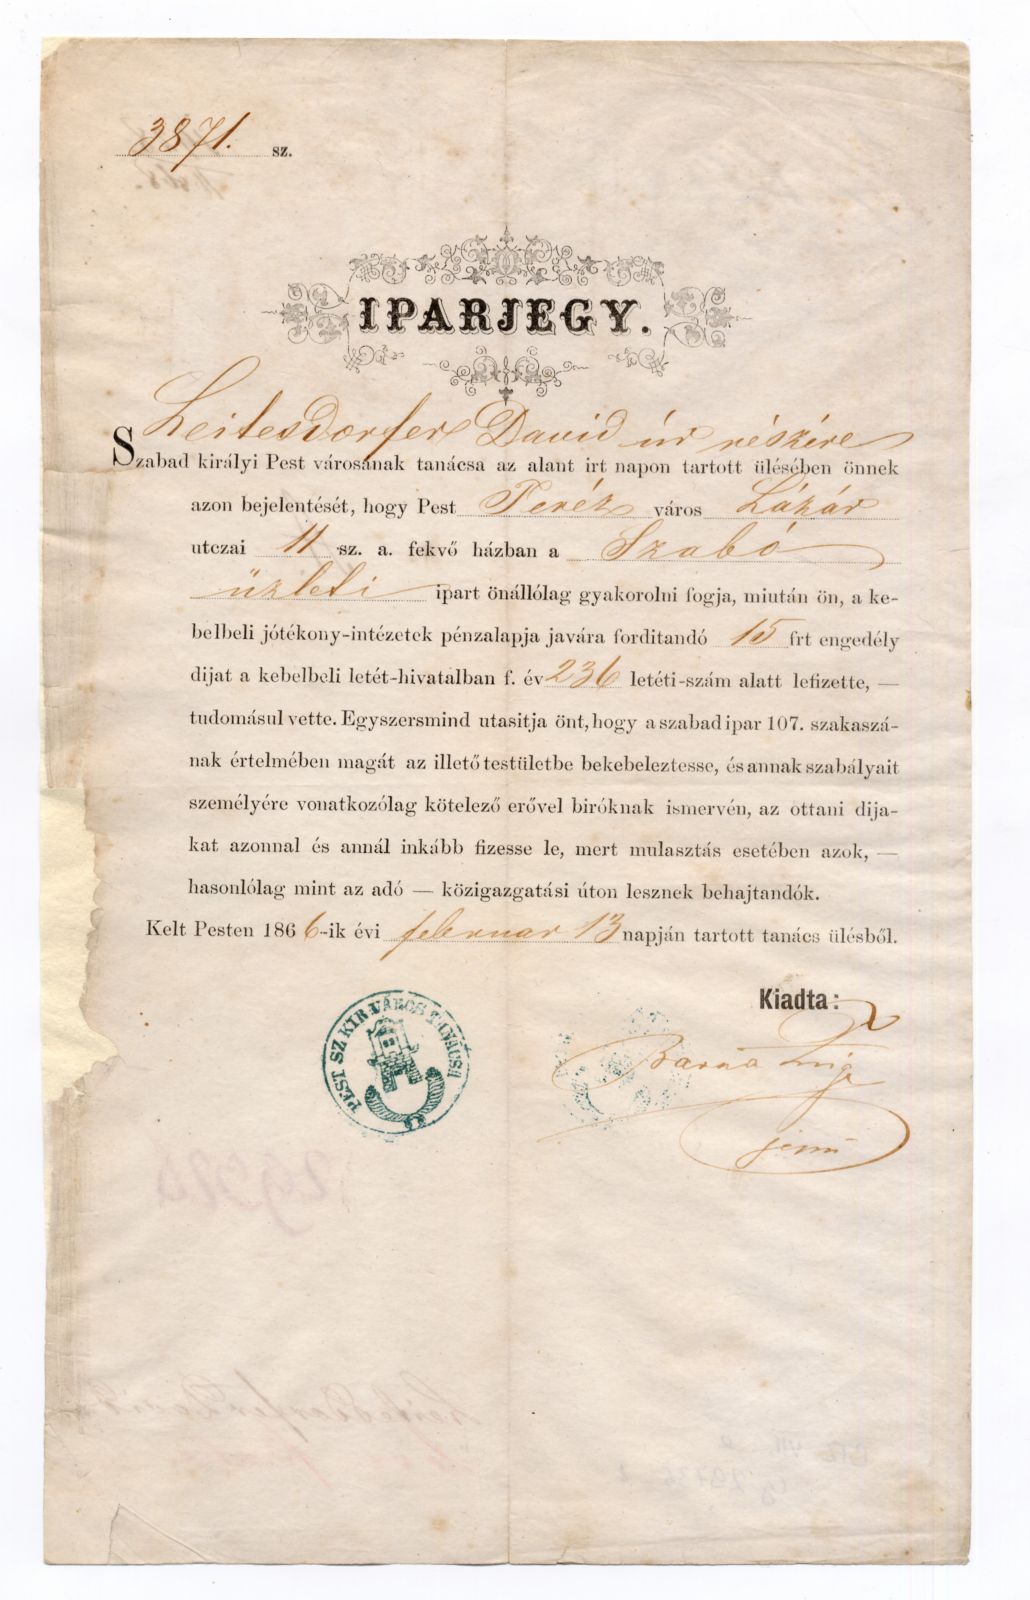 3871. sz.
IPARJEGY.
Leitesdorfer David úr részére
Szabad királyi Pest városának tanácsa az alant irt napon tartott ülésében önnek
azon bejelentését, hogy Pest Teréz város Lázár
utczai 11 sz. a. fekvő házban a Szabó
üzleti ipart önállólag gyakorolni fogja, miután ön, a ke-
belbeli jótékony-intézetek pénzalapja javára forditandó 15 frt engedély
dijat a kebelbeli letét-hivatalban f. év 236 letéti-szám alatt lefizette, —
tudomásul vette. Egyszersmind utasitja önt, hogy a szabad ipar 107. szakaszá-
nak értelmében magát az illető testületbe bekebeleztesse, és annak szabályait
személyére vonatkozólag kötelező erővel biróknak ismervén, az ottani dija-
kat azonnal és annál inkább fizesse le, mert mulasztás esetében azok, —
hasonlólag mint az adó — közigazgatási úton lesznek behajtandók.
Kelt Pesten 1866-ik évi februar 13 napján tartott tanács ülésből.
Kiadta:
PEST SZ KIR VÁROS TANÁCSA